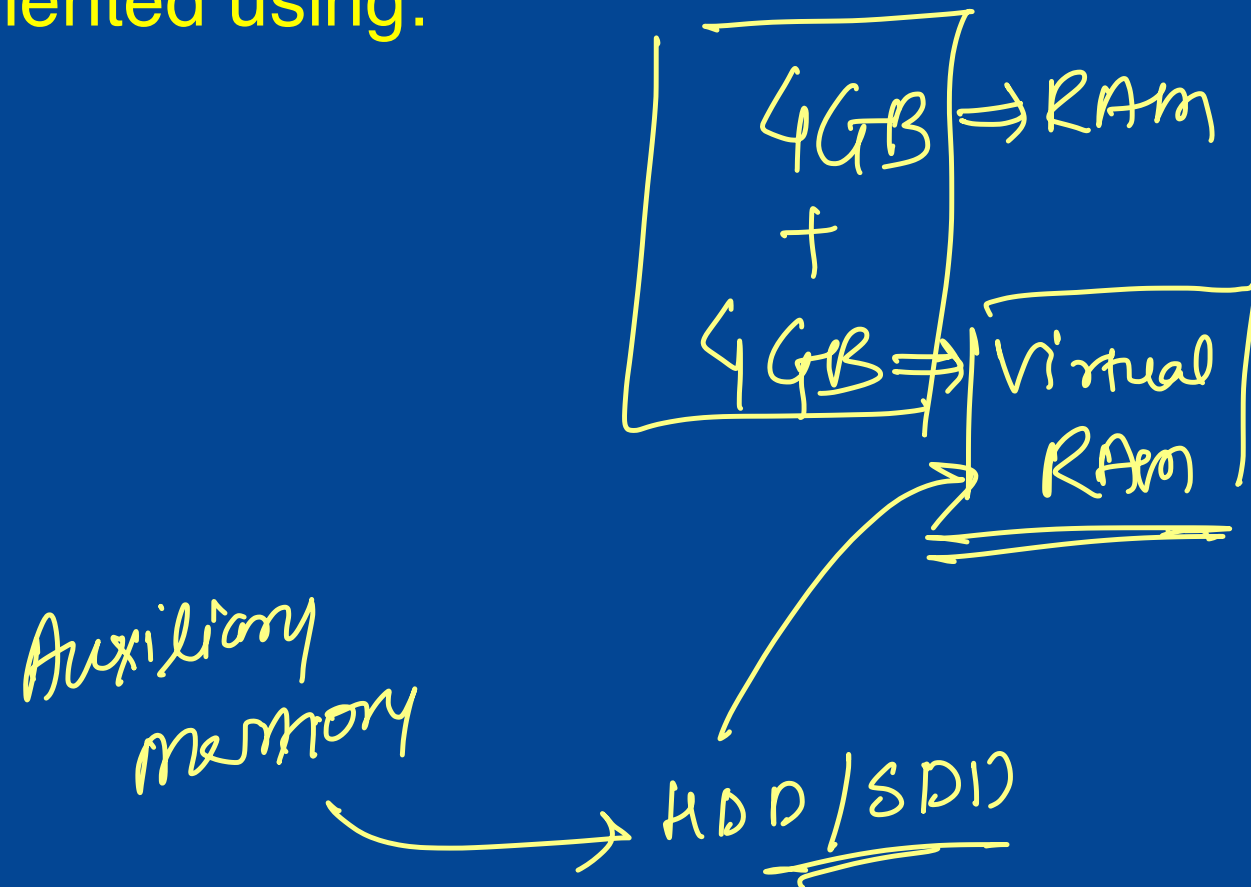 ented using:
4GB ⇒ RAM
+
4GB ⇒ Virtual
RAM
Auxiliary
memory
HDD/SDD